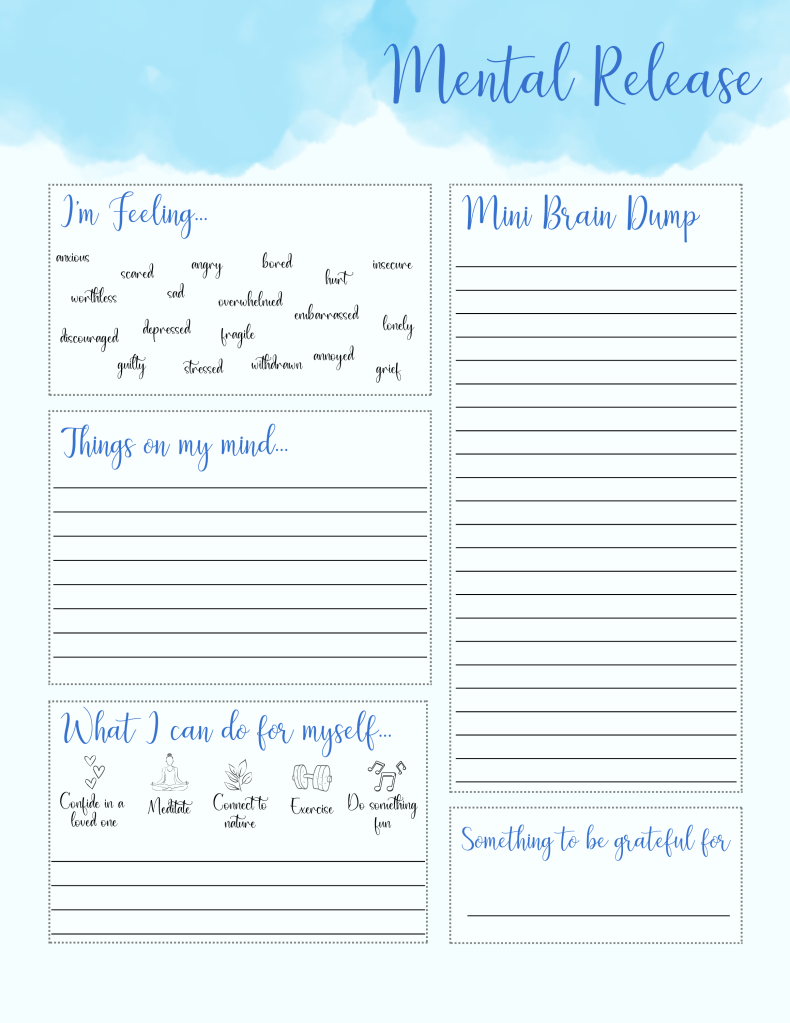 Mental Release
I'm Feeling...
anxious
scared
angry
bored
hurt
insecure
worthless
sad
overwhelmed
embarrassed
lonely
discouraged
depressed
fragile
guilty
stressed
withdrawn
annoyed
grief
Things on my mind...
What I can do for myself...
Confide in a
loved one
Meditate
Connect to
nature
Exercise
Do something
fun
Mini Brain Dump
Something to be grateful for